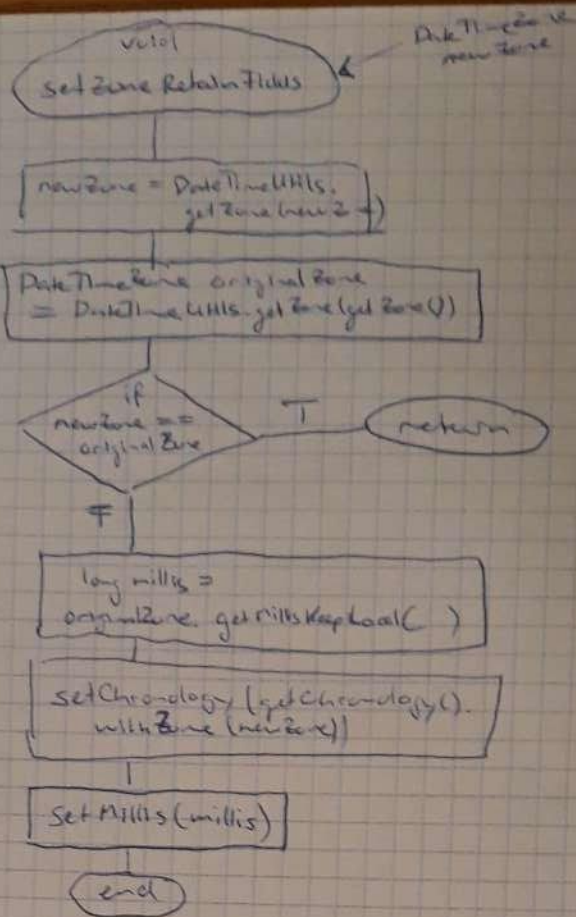 void
setZoneRetainFields
DateTimeZone
newZone
newZone = DateTimeUtils.
getZone(newZ )
DateTimeZone originalZone
= DateTimeUtils.getZone(getZone())
if
newZone ==
originalZone
T
return
F
long millis =
originalZone. getMillisKeepLocal( )
setChronology(getChronology().
withZone(newZone))
setMillis(millis)
end